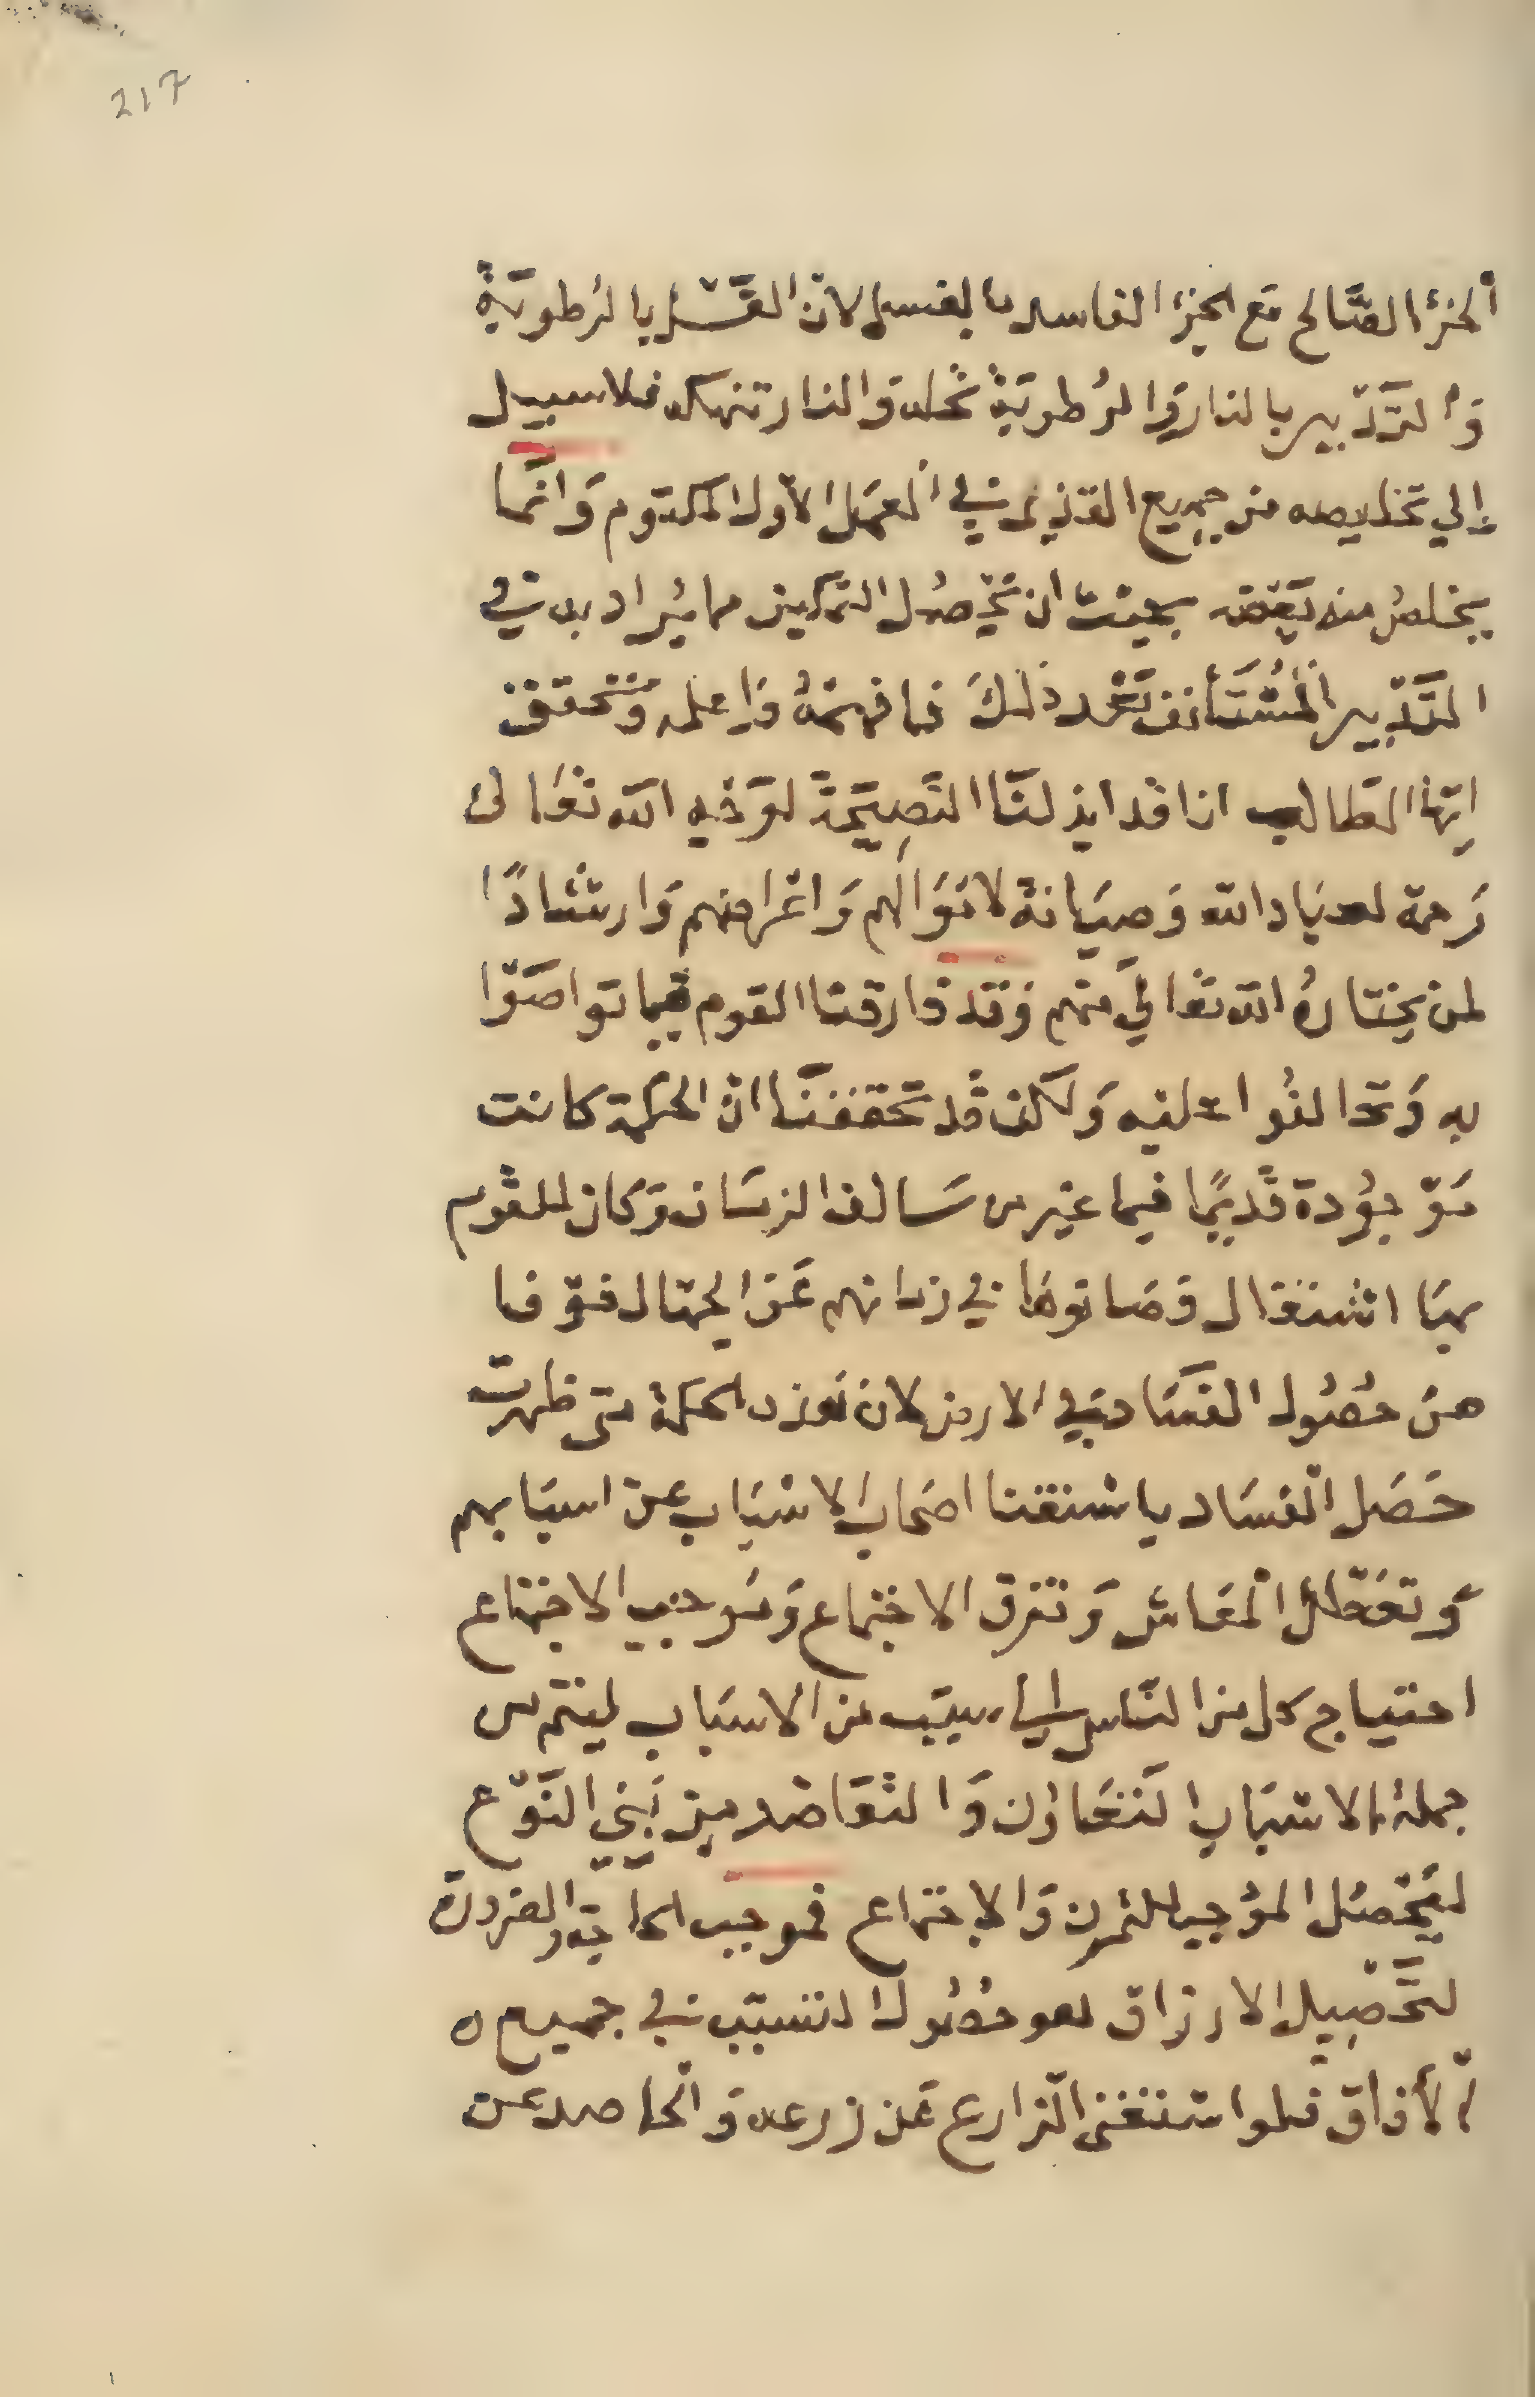 217
الجزء الصَّالح مَع الجزء الفاسد بالغسل لانّ الغَسْل بالرُطوبَةِ
وَالتَدْبير بالنار وَالرُطوبَةُ تحُله وَالنار تنهكه فلا سبيل
إلي تخليصه من جميع القذي في العَمل الأول المكتوم وَانمَّا
يخلصُ منه بَعْضه بحيث ان يَحْصُل التمكين مما يُراد به في
التَدْبير المُسْتَأنف بَعْد ذلكَ فافهمْهُ وَاعلمه وَتحقق
ايّها الطَالب انا قد ابذلنَا النَصِيَحةَ لوَجه الله تعَالى
رَحمة لعبَاد الله وَصيَانةً لامَوَالهم وَاعْراضهم وَارشَادًا
لمن يختارهُ الله تعَالي منهم وَقد فارقنا القوم فيما تواصَوْا
به وَتحَالفُوا عليْه وَلكن قد تحَققنَا انّ الحكمة كانت
مَوْجوُدة قَديمًا فيما غبر من سَالف الزمَان وَكان للقوم
بهَا اشتغَال وَصَانوهَا في زمانهم عَن الجهّال خوْفا
منْ حصُول الفسَاد في الارض لان هذه الحكمة متى ظهرت
حَصَل الفسَاد باستغنا اصْحاب الاسْبَاب عن اسبَابهم
وَتعَطّل المعَاش وَتفرق الاجتماع وَمُوجب الاجتماع
احتياج كل من النَاس الى سبَب من الاسبَاب ليتم من
جملة الاسْبَاب التعَاوُن وَالتعَاضد بين بَني النَوْع
ليَحْصُل الموُجب للتمدن وَالاجتماع فموجب الحاجة والضرورة
لتَحْصِيل الارزاق هو حصُول التسبب في جميع ه
الأفاق فلو استغنى الزارع عَن زرعه وَالحاصد عن